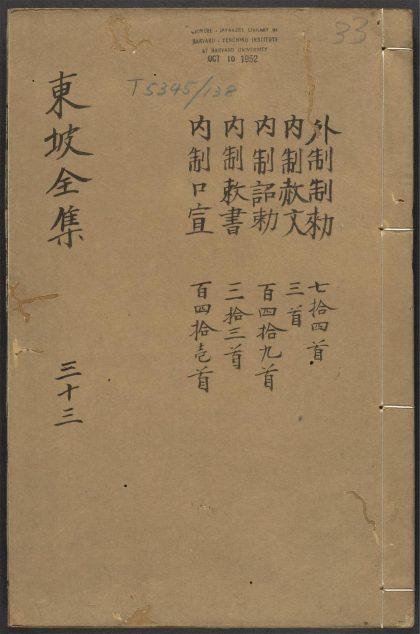 33
CHINESE - JAPANESE LIBRARY OF
HARVARD - YENCHING INSTITUTE
AT HARVARD UNIVERSITY
OCT 10 1952
T5345/138
外制制勑 七拾四首
内制赦文 三首
内制詔勑 百四拾九首
内制敕書 三拾三首
内制口宣 百四拾壱首
東坡全集 三十三